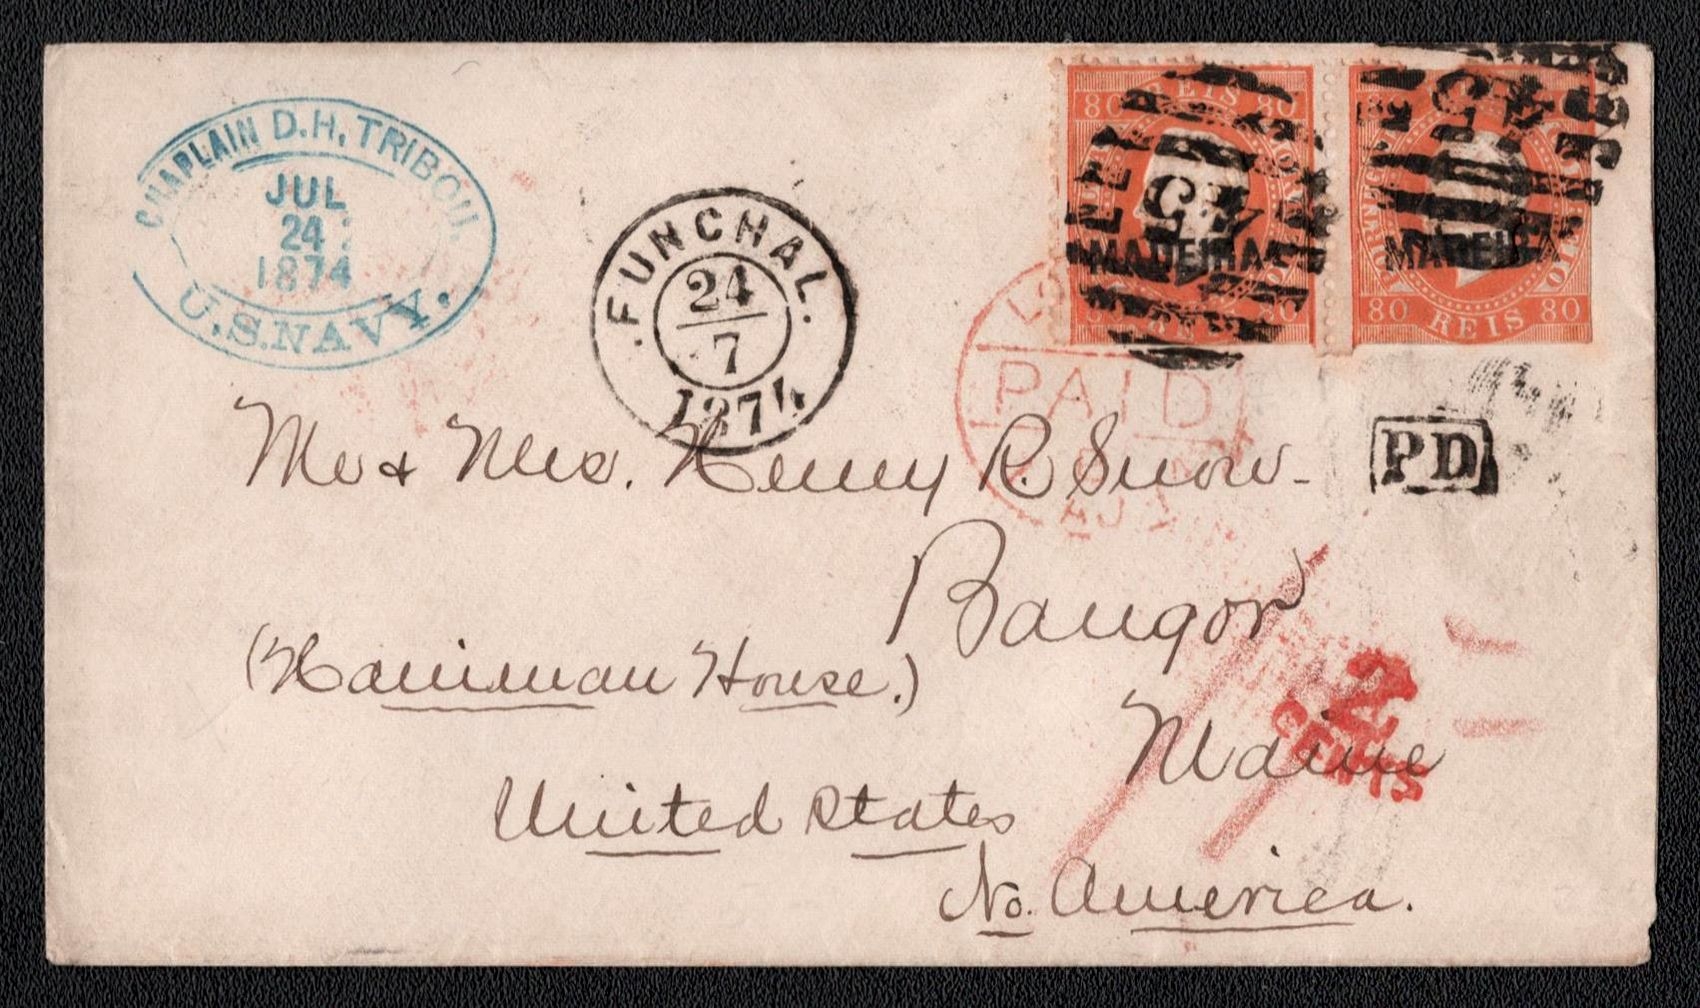 CHAPLAIN D.H. TRIBOU.
JUL
24
1874
U.S.NAVY.
.FUNCHAL.
24
7
1874
80 REIS 80
45
MADEIRA
80
45
MADEIRA
80 REIS 80
PAID
PD
Mr & Mrs. Henry R. Snow-
Bangor
(Harriman House.)
Maine
2
CENTS
United States
No. America.